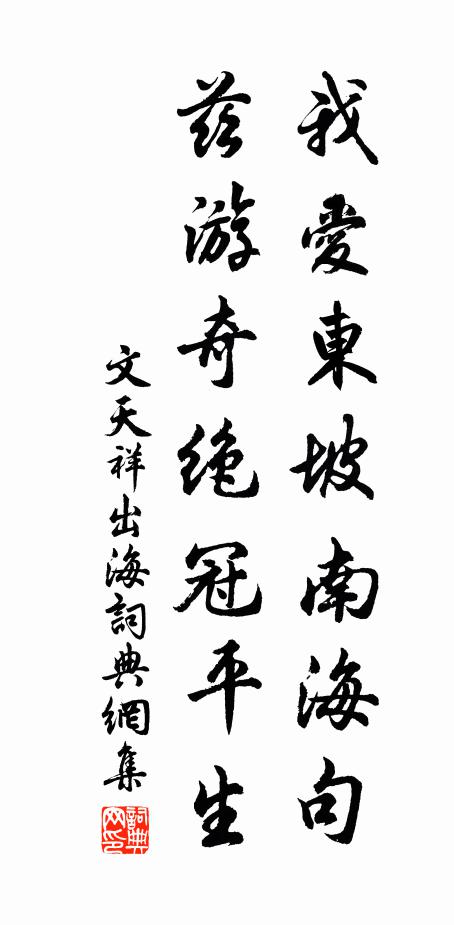 我愛東坡南海句
茲游奇絶冠平生
文天祥出海詞典網集
詞典
网印